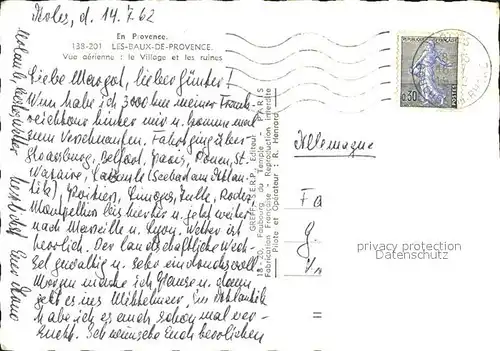 d. 14.7.62
En Provence.
138-201 LES-BAUX-DE-PROVENCE.
Vue aérienne : le Village et les ruines
Liebe Margot, lieber Günter!
Nun habe ich 3000 km meiner Frank-
reichtour hinter mir u. komme mal
zum Verschnaufen. Fahrt ging über
Strassburg, Belfort, Paris, Rouen, St.
Nazaire, La Baule (Seebad am Atlan-
tik), Poitiers, Limoges, Tulle, Rodez,
Montpellier bis hierher u. jetzt weiter
nach Marseille u. Lyon. Wetter ist
herrlich. Der landschaftliche Wech-
sel gewaltig u. sehr eindrucksvoll.
Morgen mache ich Pause u. dann
geht es ins Mittelmeer. Im Atlantik
habe ich es auch schon mal ver-
sucht. Ich wünsche Euch herrlichen
herzlichst Euer
GREFF S.E.R.P., Editeur
18 - 20, Faubourg du Temple - PARIS
Fabrication Française - Reproduction Interdite
Pilote - Opérateur : R. Henrard
0,30
POSTES
Allemagne
Fa
privacy protection
Datenschutz